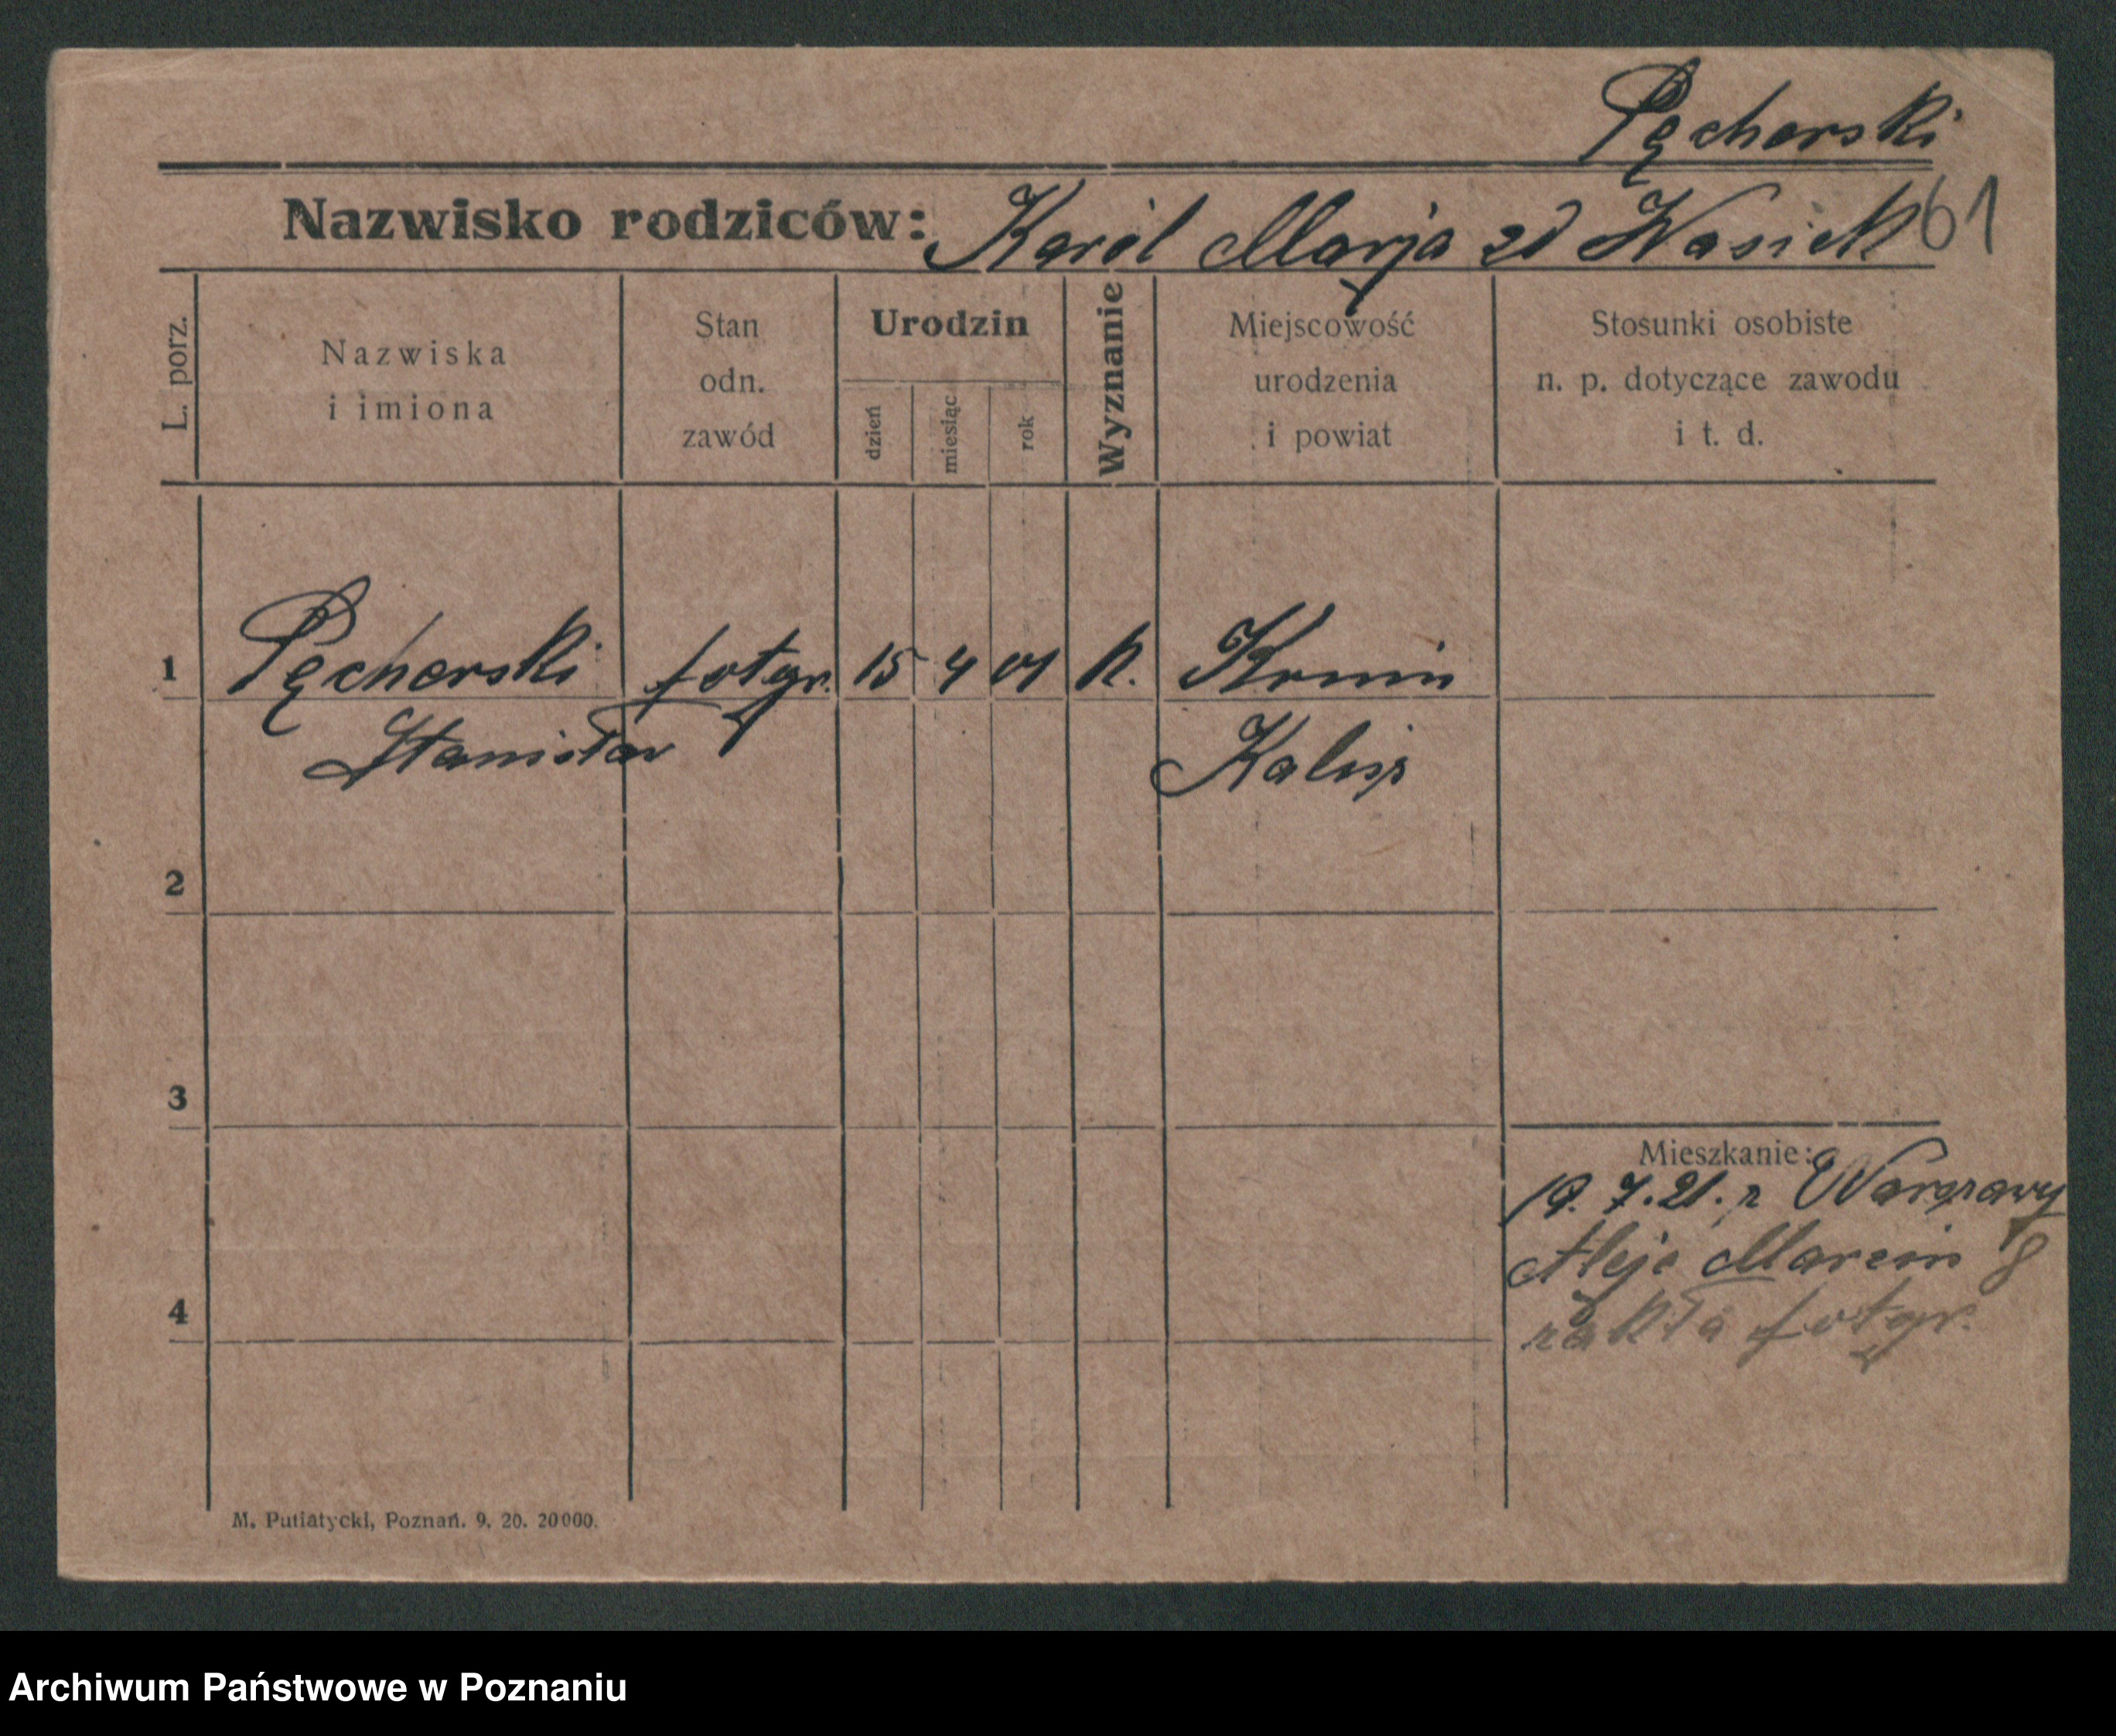 Pęcherski
Nazwisko rodziców: Karol Marja zd Wasiak 61
L. porz.
Nazwiska
i imiona
Stan
odn.
zawód
Urodzin
dzień
miesiąc
rok
Wyznanie
Miejscowość
urodzenia
i powiat
Stosunki osobiste
n. p. dotyczące zawodu
i t. d.
1 Pęcherski fotgr. 15 4 01 K.
Stanisław Kalisz
2
3
Mieszkanie:
19. 7. 21. z Warszawy
Aleje Marcin 8
4
zakła fotgr.
M. Putiatycki, Poznań. 9. 20. 20000.
Archiwum Państwowe w Poznaniu